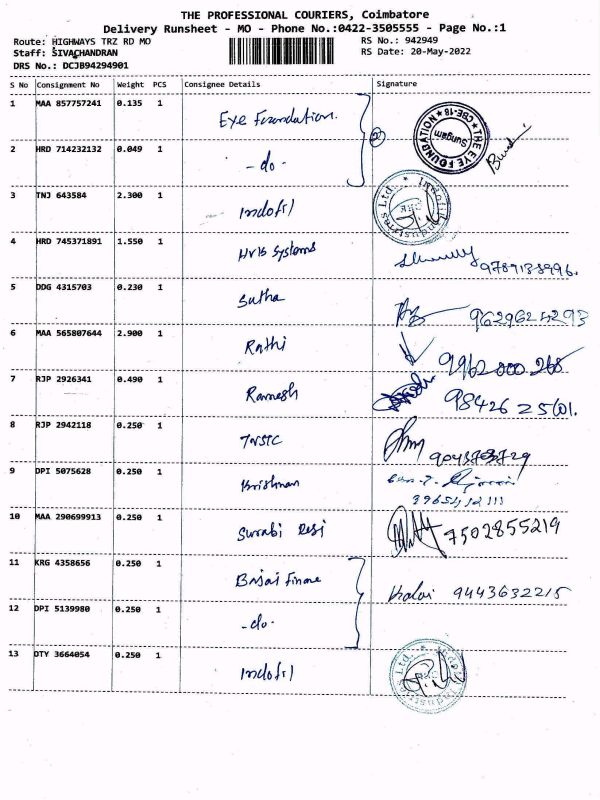 THE PROFESSIONAL COURIERS, Coimbatore
Delivery Runsheet - MO - Phone No.:0422-3505555 - Page No.:1
Route: HIGHWAYS TRZ RD MO RS No.: 942949
Staff: SIVACHANDRAN RS Date: 20-May-2022
DRS No.: DCJB94294901
S No Consignment No Weight PCS Consignee Details Signature
1 MAA 857757241 0.135 1 Eye Foundation.
THE EYE FOUNDATION CBE-18 Sungam
2 HRD 714232132 0.049 1 -do- 2
3 TNJ 643584 2.300 1 Indofil Indofil Industries Ltd.
4 HRD 745371891 1.550 1 HVB Systems
5 DDG 4315703 0.230 1 Sutha
6 MAA 565807644 2.900 1 Rathi 9962 000 268
7 RJP 2926341 0.490 1 Ramesh 98426 25501.
8 RJP 2942118 0.250 1
9 DPI 5075628 0.250 1 Krishnan
10 MAA 290699913 0.250 1 Surabi 7502855219
11 KRG 4358656 0.250 1 Bajaj Finance Kalai 9443632215
12 DPI 5139980 0.250 1 -do-
13 DTY 3664054 0.250 1 Indofil Indofil Industries Ltd.